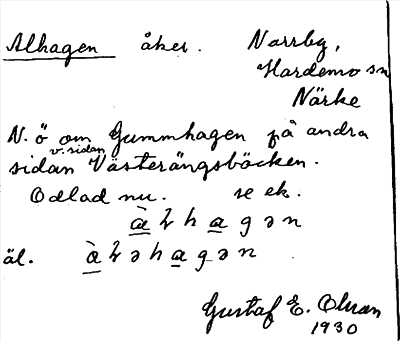 Alhagen åker. Norrbg,
Hardemo sn
Närke
N. ö om Gummhagen på andra
v. sidan
sidan Västerängsbäcken.
Odlad nu. se ek.
àⱡhagən
äl. àⱡəhagən
Gustaf E. Olsson
1930